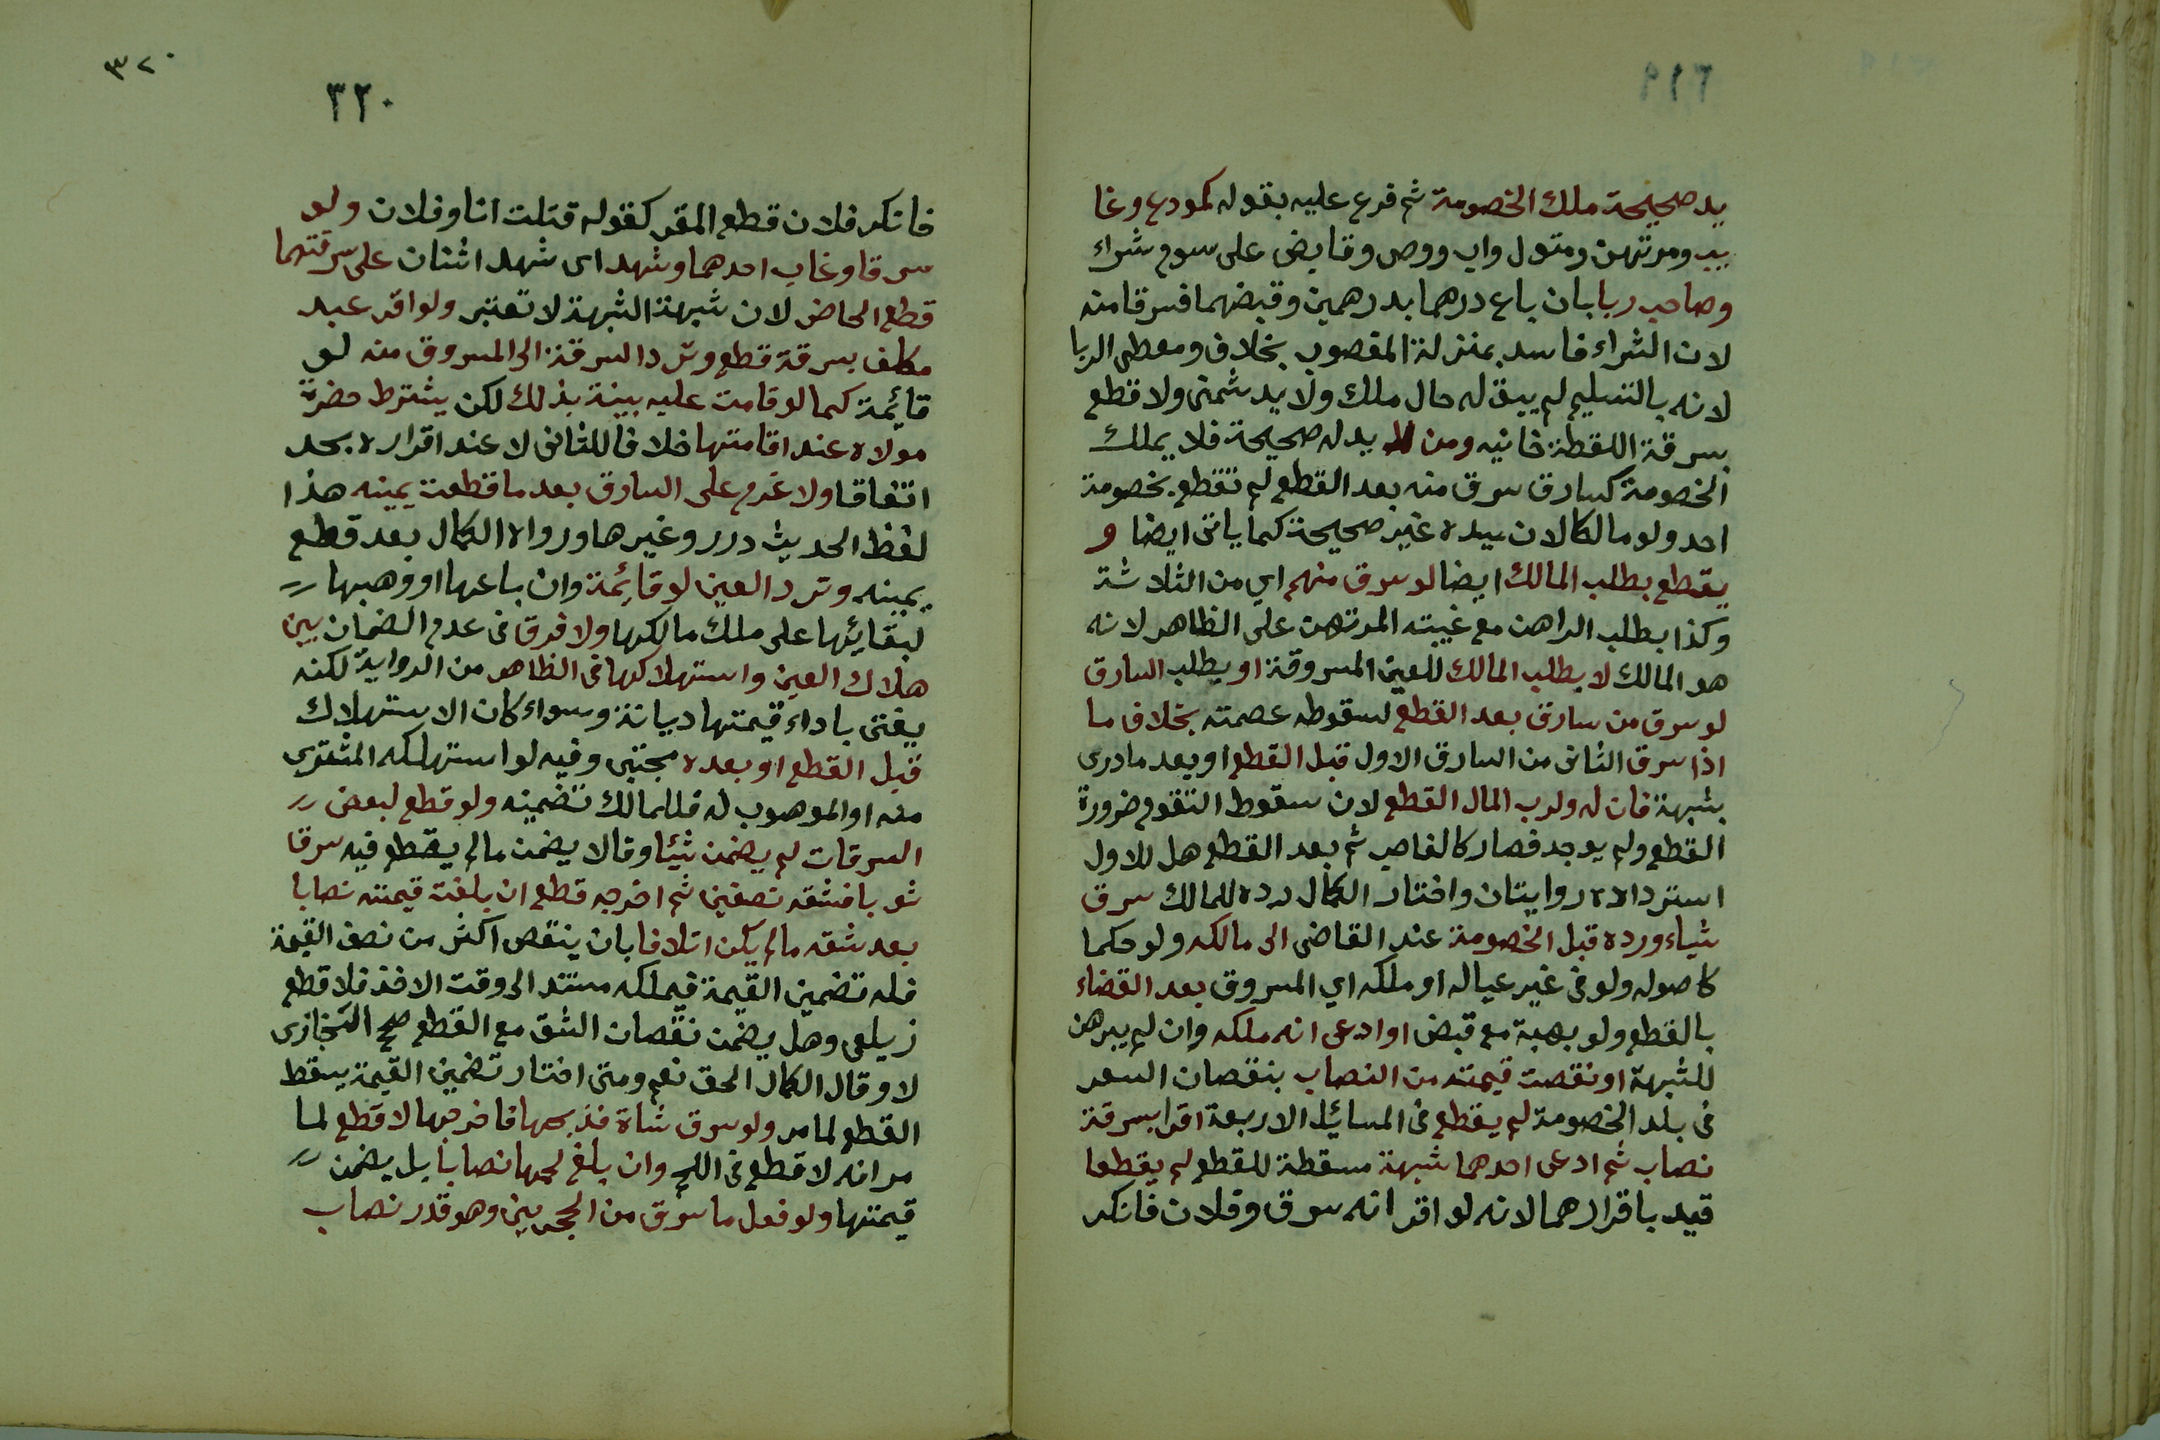 ٣١٩
يد صحيحة ملك الخصومة ثم فرع عليه بقوله كمودع وغا
ىىب ومرتهن ومتول واب ووصى وقابض على سوم شراء
وصاحب ربا بان باع درهما بدرهمين وقبضهما فسرقا منه
لان الشراء فاسد بمنزلة المغصوب بخلاف ومعطى الربا
لانه بالتسليم لم يبق له حال ملك ولا يد شمنى ولا قطع
بسرقة اللقطة خانيه ومن لا يد له صحيحة فلا يملك
الخصومة كسارق سرق منه بعد القطع لم تقطع بخصومة
احد ولو مالكا لان يده غير صحيحة كما ياتى ايضا و
يقطع بطلب المالك ايضا لو سرق منهم اي من الثلاثة
وكذا بطلب الراهن مع غيبته المرتهن على الظاهر لانه
هو المالك لا بطلب المالك للعين المسروقة او يطلب السارق
لو سرق من سارق بعد القطع لسقوطه عصمته بخلاف ما
اذا سرق الثانى من السارق الاول قبل القطع او بعد مادرى
بشبهة فان له ولرب المال القطع لان سقوط التقوم ضرورة
القطع ولم يوجد فصار كالغاصب ثم بعد القطع هل للاول
استرداده روايتان واختار الكمال رده للمالك سرق
شياء ورده قبل الخصومة عند القاضى الى مالكه ولو حكما
كاصوله ولو فى غير عياله او ملكه اي المسروق بعد القضاء
بالقطع ولو بهبة مع قبض او ادعى انه ملكه وان لم يبرهن
للشبهة او نقصت قيمته من النصاب بنقصان السعر
فى بلد الخصومة لم يقطع فى المسائل الاربعة اقرا بسرقة
نصاب ثم ادعى احدهما شبهة مسقطة للقطع لم يقطعا
قيد باقرارهما لانه لو اقر انه سرق وفلان فانكر
٣٢٠
٣٢٠
فانكر فلان قطع المقر كقوله قتلت انا وفلان ولو
سرقا وغاب احدهما وشهد اى شهد اثنان على سرقتهما
قطع الحاضر لان شبهة الشبهة لا تعتبر ولو اقر عبد
مكلف بسرقة قطع وترد السرقة الى المسروق منه لو
قائمة كما لو قامت عليه بينة بذلك لكن يشترط حضرة
مولاه عند اقامتها خلافا للثانى لا عند اقراره بحد
اتفاقا ولا غرم على السارق بعد ما قطعت يمينه هذا
لفظ الحديث درر وغيرها ورواه الكمال بعد قطع
يمينه وترد العين لو قائمة وان باعها او وهبها
لبقائها على ملك مالكها ولا فرق فى عدم الضمان بين
هلاك العين واستهلاكها فى الظاهر من الرواية لكنه
يفتى باداء قيمتها ديانة وسواء كان الاستهلاك
قبل القطع او بعده مجتبى وفيه لو استهلكه المشترى
منه او الموهوب له فللمالك تضمينه ولو قطع لبعض
السرقات لم يضمن شيئا وقالا يضمن ما لم يقطع فيه سرقا
ثوبا فشقه نصفين ثم اخرجه قطع ان بلغت قيمته نصابا
بعد شقه ما لم يكن اتلافا بان ينقص اكثر من نصف القيمة
فله تضمين القيمة فيملكه مستند الى وقت الاخذ فلا قطع
زيلعى وهل يضمن نقصان الشق مع القطع صحح الخبازى
لا وقال الكمال الحق نعم ومتى اختار تضمين القيمة يسقط
القطع لما مر ولو سرق شاة فذبحها فاخرجها لا قطع لما
مر انه لا قطع فى اللحم وان بلغ لحمها نصابا بل يضمن
قيمتها ولو فعل ما سرق من الحجرين وهو قدر نصاب